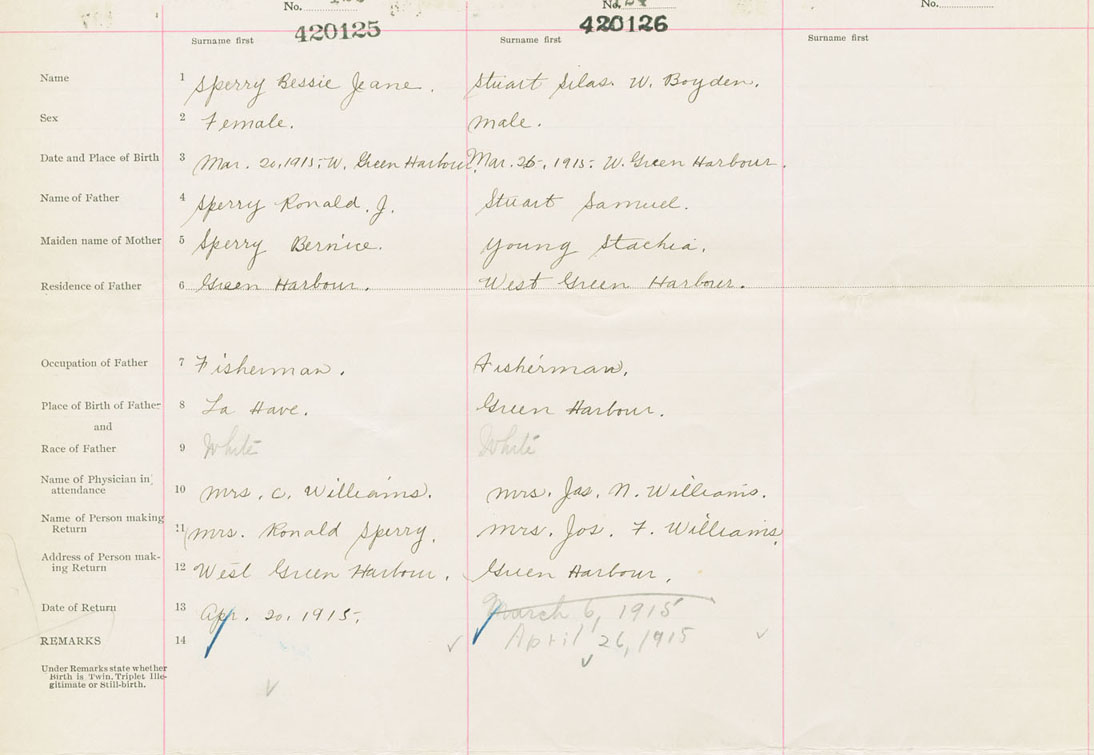 No.
No.
No.
420125
420126
Surname first
Surname first
Surname first
Name 1 Sperry Bessie Jeane. Stuart Silas. W. Boyden.
Sex 2 Female. male.
Date and Place of Birth 3 Mar. 20, 1915. W. Green Harbour. Mar. 26, 1915. W. Green Harbour.
Name of Father 4 Sperry Ronald. J. Stuart Samuel.
Maiden name of Mother 5 Sperry Bernice. Young Stachia.
Residence of Father 6 Green Harbour. West Green Harbour.
Occupation of Father 7 Fisherman. Fisherman.
Place of Birth of Father 8 La Have. Green Harbour.
and
Race of Father 9 White White
Name of Physician in attendance 10 Mrs. C. Williams. Mrs. Jas. N. Williams.
Name of Person making Return 11 Mrs. Ronald Sperry. Mrs. Jos. F. Williams.
Address of Person mak-
ing Return 12 West Green Harbour. Green Harbour.
Date of Return 13 Apr. 20, 1915. March 6, 1915
REMARKS 14 April 26, 1915
Under Remarks state whether
Birth is Twin, Triplet Ille-
gitimate or Still-birth.